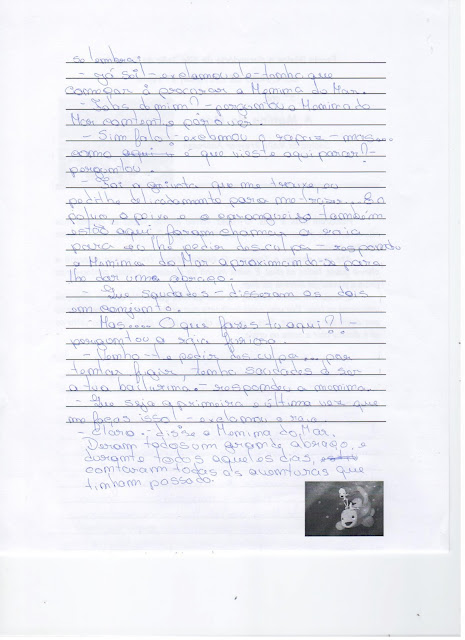 se lembra:
- Já sei! - exclamou ele - tenho que
começar á procurar a Menina do Mar.
- Falas de mim? - perguntou a Menina do
Mar contente por o ver.
- Sim falo! - exclamou o rapaz - mas...
como é que vieste aqui parar? -
perguntou.
- Foi a gaivota que me trouxe, eu
pedi-lhe delicadamente para me trazer... E o
polvo, o peixe e o caranguejo também
estão aqui foram chamar a raia
para eu lhe pedir desculpa - respondeu
a Menina do Mar aproximando-se para
lho dar um abraço.
- Que saudades - disseram os dois
em conjunto.
- Mas.... O que fazes tu aqui?! -
perguntou a raia furiosa.
- Venho-te pedir desculpa... por
tentar fugir, tenho saudades de ser
a tua bailarina. - respondeu a menina.
- Que seja a primeira e última vez que
me faças isso! - exclamou a raia
- Claro - disse a Menina do Mar.
Deram todos um grande abraço, e
durante todos aqueles dias,
contaram todas as aventuras que
tinham passado.